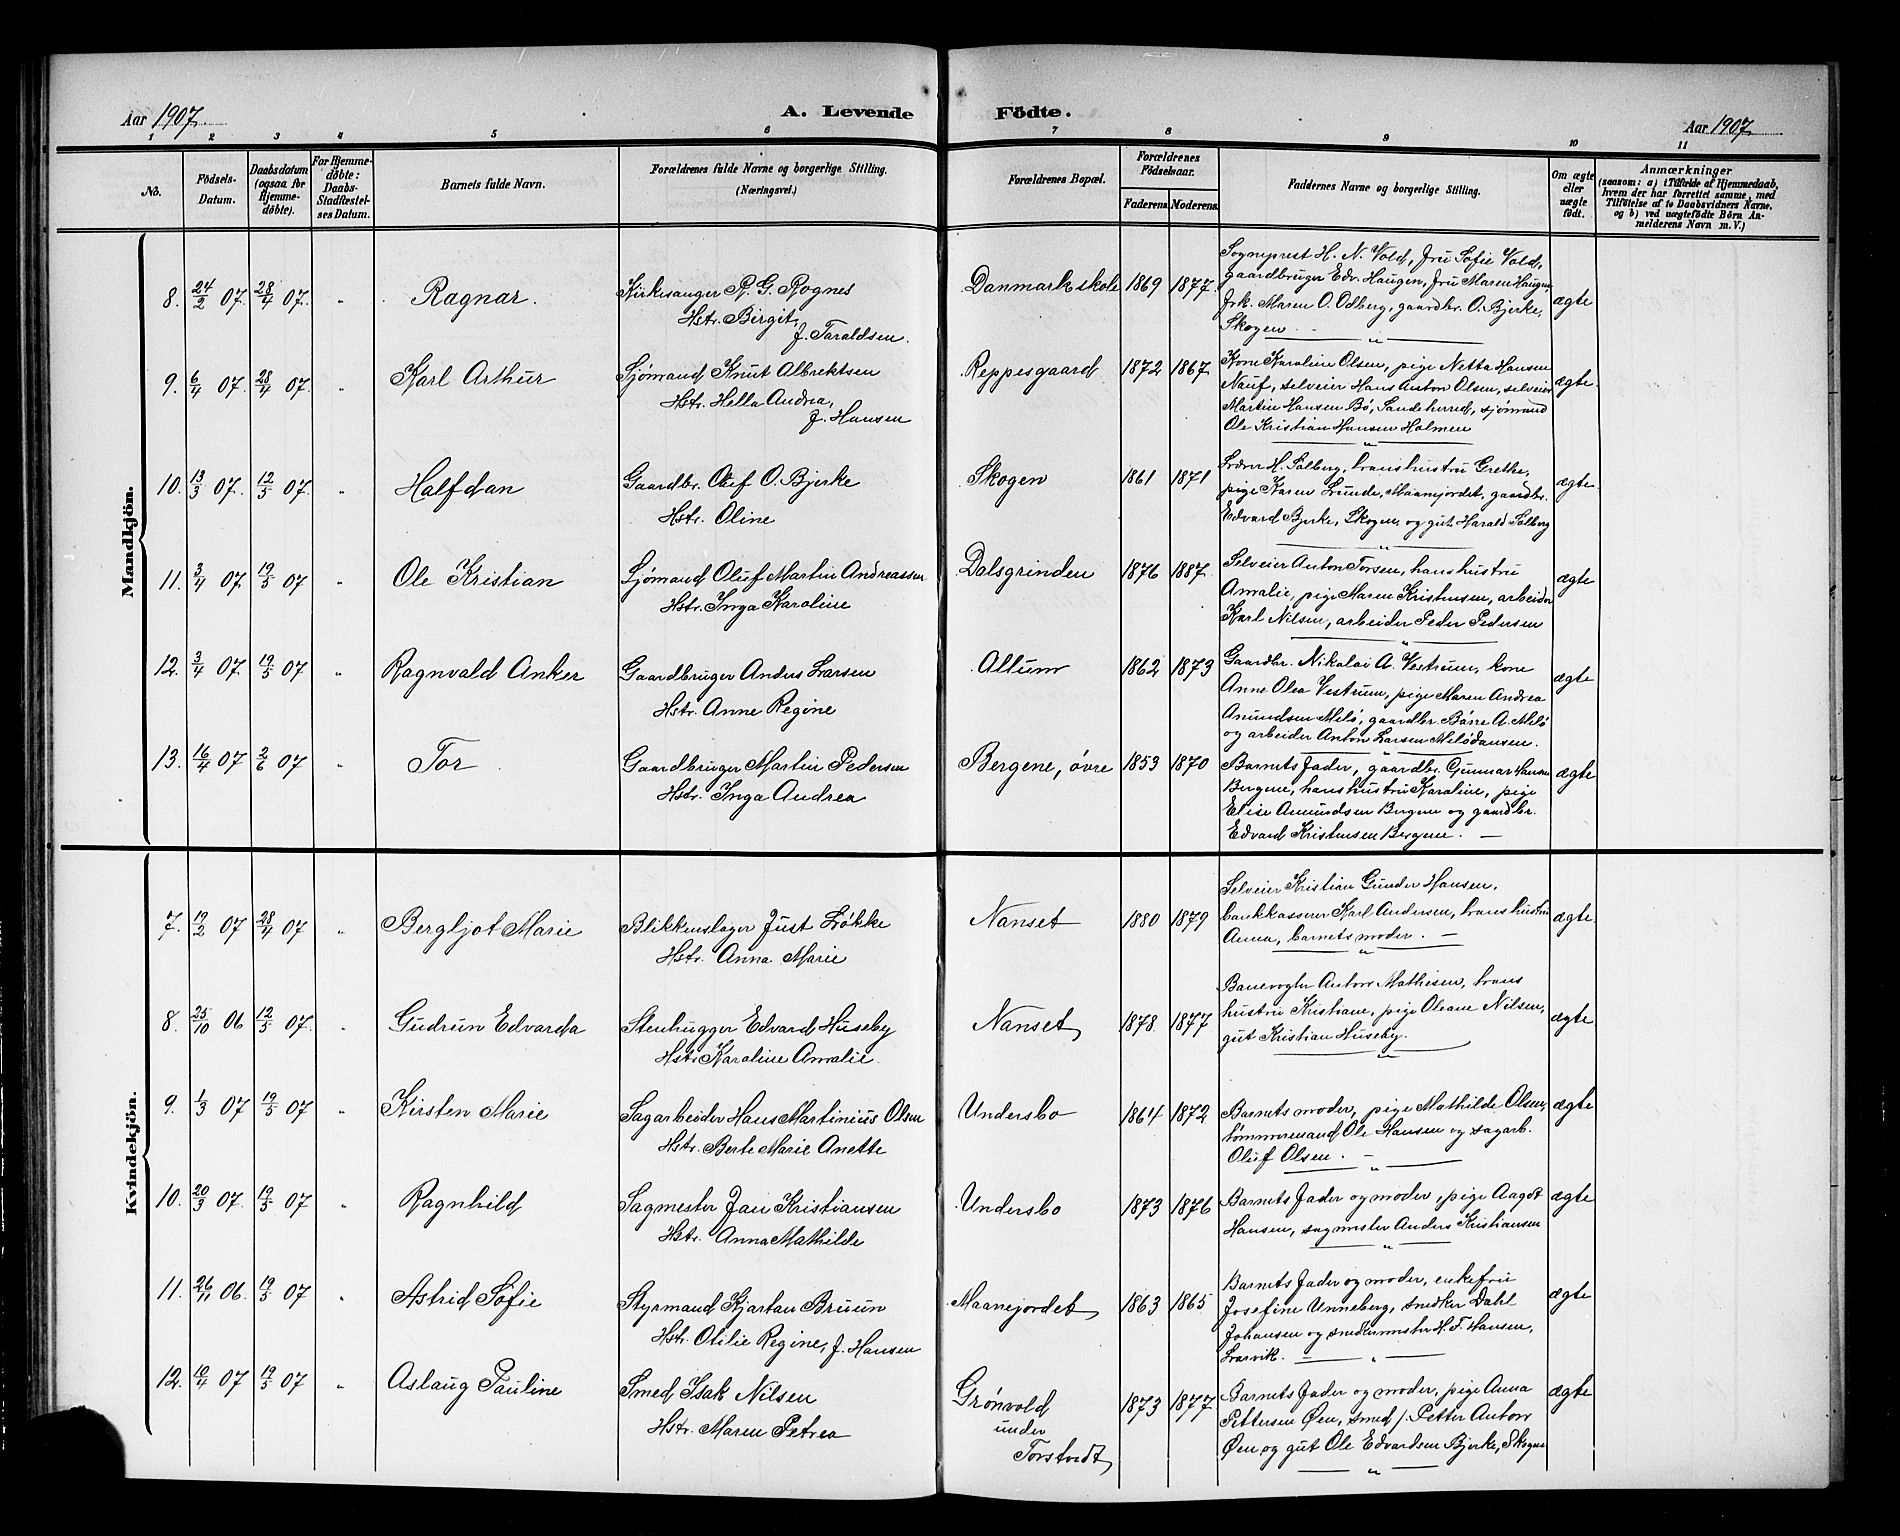 Aar 1907.
A. Levende Födte.
Aar 1907
1 2 3 4 5 6 7 8 9 10 11
No.
Födsels-
Datum.
Daabsdatum
(ogsaa for
Hjemme-
döbte).
For Hjemme-
döbte:
Daabs-
Stadfæstel-
ses Datum.
Barnets fulde Navn.
Forældrenes fulde Navne og borgerlige Stilling.
(Næringsvei.)
Forældrenes Bopæl.
Forældrenes
Födselsaar.
Faderens.
Moderens.
Faddernes Navne og borgerlige Stilling.
Om ægte
eller
uægte
födt.
Anmærkninger
(saasom: a) i Tilfælde af Hjemmedaab,
hvem der har forrettet samme, med
Tilföielse af to Daabsvidners Navne,
og b) ved uægtefödte Börn An-
melderens Navn m. V.)
Mandkjön.
8. 24/2 07. 28/4 07. " Ragnar.
Kirkesanger R. G. Rognes
Hstr. Birgit,
f. Taraldsen.
Danmark skole 1869 1877.
Sogneprest H. N. Vold, fru Sofie Vold,
gaardbruger Edv. Haugen, fru Maren Haugen,
frk. Maren O. Odberg, gaardbr. O. Bjerke,
Skogen.
ægte
9. 6/4 07. 28/4 07 " Karl Arthur
Sjømand Knut Albrektsen
Hstr. Hella Andrea,
f. Hansen
Reppesgaard 1872 1867
Kone Karoline Olsen, pige Netta Hansen
Nauf, selveier Hans Anton Olsen, selveier
Martin Hansen Bø, Sandeherred, sjømand
Ole Kristian Hansen Holmen
ægte.
10. 13/3 07. 12/5 07. " Halfdan
Gaardbr. Olaf O. Bjerke
Hstr. Oline
Skogen 1861 1871
Lærer H. Solberg, hans hustru Grethe,
pige Karen Lunde, Maanejordet, gaardbr.
Edvard Bjerke, Skogen, og gut Harald Solberg
ægte.
11. 3/4 07 19/5 07 " Ole Kristian
Sjømand Oluf Martin Andreassen
Hstr. Inga Karoline
Dalsgrinden 1876 1887
Selveier Anton Torsen, hans hustru
Amalie, pige Maren Kristensen, arbeider
Karl Nilsen, arbeider Peder Pedersen
ægte
12. 3/4 07 19/5 07 " Ragnvald Anker
Gaardbruger Anders Larsen
Hstr. Anne Regine
Allum 1862 1873
Gaardbr. Nikolai A. Vestrum, kone
Anne Olea Vestrum, pige Maren Andrea
Anundsen Melø, gaardbr. Børre A. Melø
og arbeider Anton Larsen Melödansen.
ægte
13. 16/4 07 2/6 07 " Tor
Gaardbruger Martin Pedersen
Hstr. Inga Andrea
Bergene, övre 1853 1870
Barnets fader, gaardbr. Gunnar Hansen
Bergene, hans hustru Karoline, pige
Elise Amundsen Bergene og gaardbr.
Edvard Kristensen Bergene.
ægte
Kvindekjön.
7. 19/2 07 28/4 07 " Bergljot Marie
Blikkenslager Just Løkke
Hstr. Anna Marie
Nanset 1880 1879
Selveier Kristian Gunder Hansen,
bankkasserer Karl Andersen, hans hustru
Anna, barnets moder.
ægte
8. 25/10 06 12/5 07. " Gudrun Edvarda
Stenhugger Edvard Huseby
Hstr. Karoline Amalie.
Nanset 1878. 1877
Banevogter Anton Mathisen, hans
hustru Kristiane, pige Oleane Nilsen,
gut Kristian Huseby.
ægte
9. 1/3 07 19/5 07 " Kirsten Marie
Sagarbeider Hans Martinius Olsen
Hstr. Berte Marie Anette
Undersbo 1864 1872
Barnets moder, pige Mathilde Olsen,
tømmermand Ole Hansen og sagarb.
Oluf Olsen.
ægte
10. 20/3 07. 19/5 07 " Ragnhild
Sagmester Jan Kristiansen
Hstr. Anna Mathilde
Undersbo 1873 1876
Barnets fader og moder, pige Aagot
Hansen, sagmester Anders Kristiansen
ægte
11. 26/11 06. 19/5 07 " Astrid Sofie
Styrmand Kjartan Bruun
Hstr. Otilie Regine, f. Hansen
Maanejordet 1863 1865
Barnets fader og moder, enkefru
Josefine Unneberg, snedker Dahl
Johansen og snedkermester H. F. Hansen,
Larvik.
ægte
12. 10/4 07 19/5 07 " Aslaug Pauline
Smed Isak Nilsen
Hstr. Maren Petrea
Grønvold
under
Torstvedt 1873 1877.
Barnets fader og moder, pige Anna
Pettersen Øen, smed Petter Anton
Øen og gut Ole Edvardsen Bjerke, Skogen
ægte